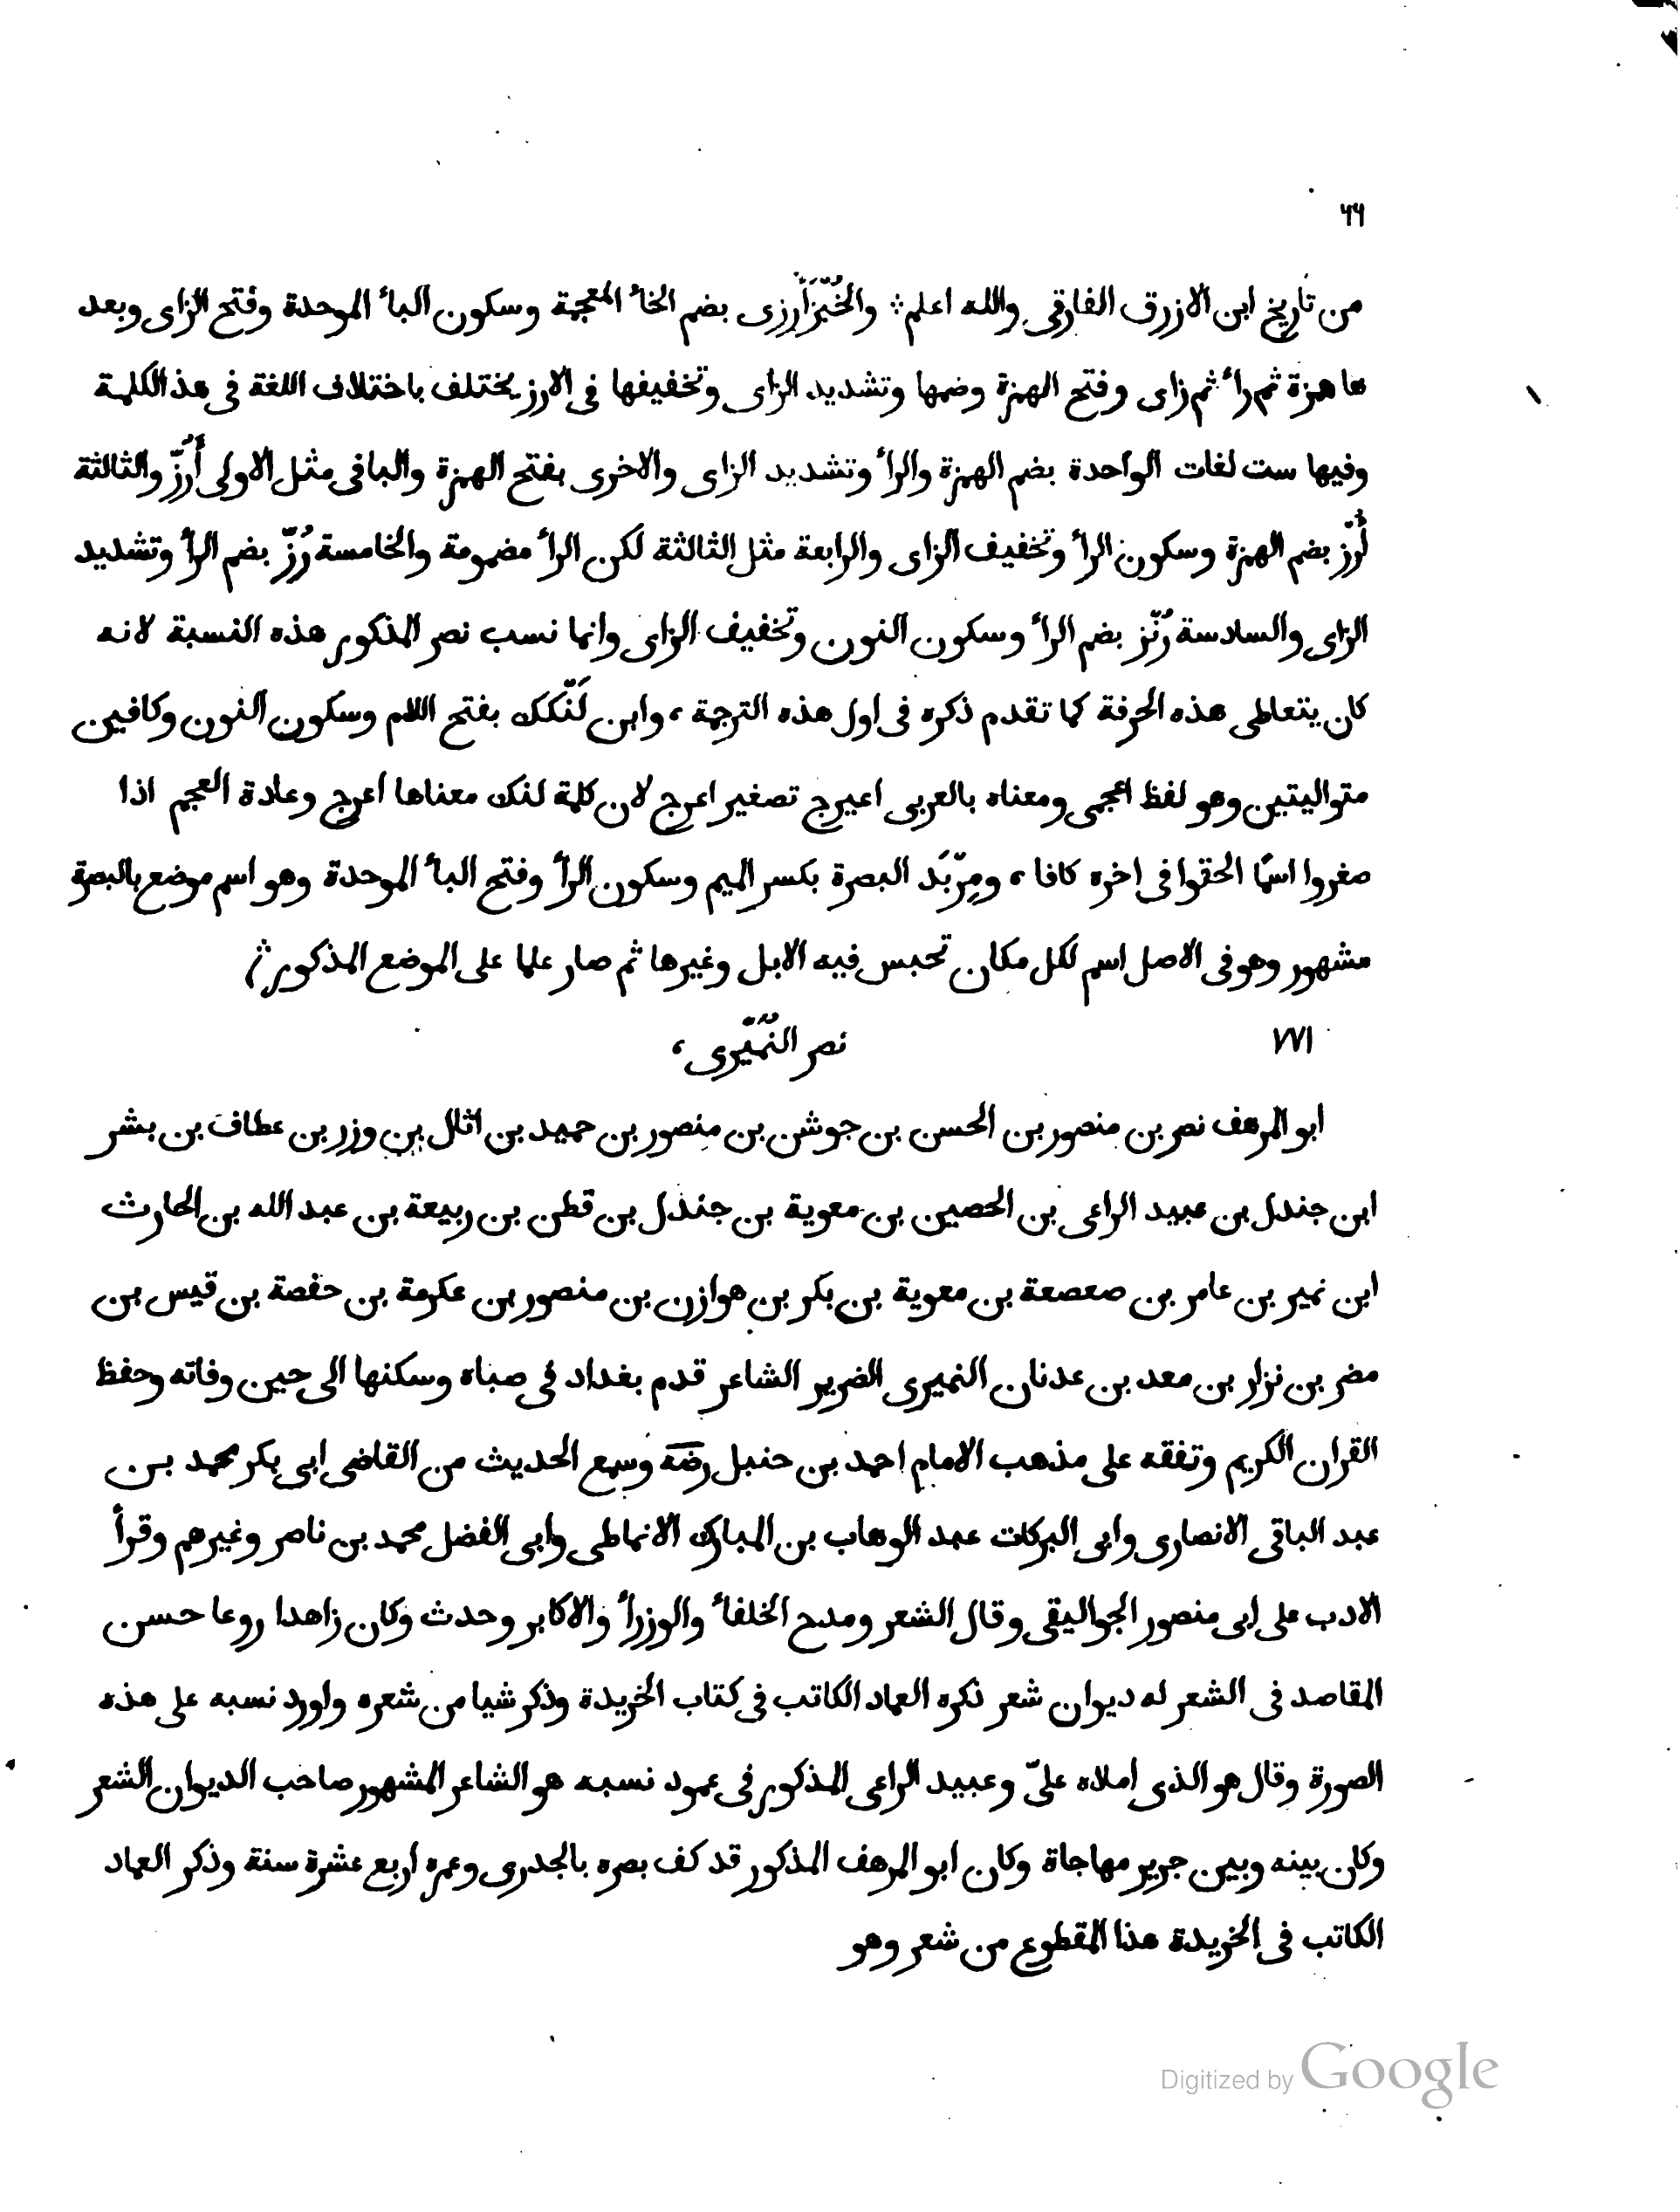 ٦٦
من تاريخ ابن الازرق الفارقى والله اعلم ۞ والخُبْزَأَرُزى بضم الخاٴ المعجمة وسكون الباٴ الموحدة وفتح الزاى وبعد
ها همزة ثم راٴ ثم زاى وفتح الهمزة وضمها وتشديد الزاى وتخفيفها فى الارز يختلف باختلاف اللغة فى هذ الكلمة
وفيها ست لغات الواحدة بضم الهمزة والراٴ وتشديد الزاى والاخرى بفتح الهمزة والباقى مثل الاولى أَرُزّ والثالثة
أُرْز بضم الهمزة وسكون الراٴ وتخفيف الزاى والرابعة مثل الثالثة لكن الراٴ مضمومة والخامسة رُزّ بضم الراٴ وتشديد
الزاى والسادسة رُنْز بضم الراٴ وسكون النون وتخفيف الزاى وانما نسب نصر المذكور هذه النسبة لانه
كان يتعاطى هذه الحرفة كما تقدم ذكره فى اول هذه الترجمة ، وابن لَنْكك بفتح اللام وسكون النون وكافين
متواليتين وهو لفظ اعجمى ومعناه بالعربى اعيرج تصغير اعرج لان كلمة لنك معناها اعرج وعادة العجم اذا
صغروا اسمًا الحقوا فى اخره كافا ، ومِرْبَد البصرة بكسر الميم وسكون الراٴ وفتح الباٴ الموحدة وهو اسم موضع بالبصرة
مشهور وهو فى الاصل اسم لكل مكان تحبس فيه الابل وغيرها ثم صار علما على الموضع المذكور ۞
٧٧١ نصر النُمَيْرى ،
ابو المرهف نصر بن منصور بن الحسن بن جوشن بن منصور بن حميد بن اثال بن وزر بن عطاف بن بشر
ابن جندل بن عبيد الراعى بن الحصين بن معوية بن جندل بن قطن بن ربيعة بن عبد الله بن الحارث
ابن نمير بن عامر بن صعصعة بن معوية بن بكر بن هوازن بن منصور بن عكرمة بن حفصة بن قيس بن
مضر بن نزار بن معد بن عدنان النميرى الضرير الشاعر قدم بغداد فى صباه وسكنها الى حين وفاته وحفظ
القران الكريم وتفقه على مذهب الامام احمد بن حنبل رضه وسمع الحديث من القاضى ابى بكر محمد بن
عبد الباقى الانصارى وابى البركات عبد الوهاب بن المبارك الانماطى وابى الفضل محمد بن ناصر وغيرهم وقرأ
الادب على ابى منصور الجواليقى وقال الشعر ومدح الخلفاٴ والوزراٴ والاكابر وحدث وكان زاهدا روعا حسن
المقاصد فى الشعر له ديوان شعر ذكره العماد الكاتب فى كتاب الخريدة وذكر شيا من شعره واورد نسبه على هذه
الصورة وقال هو الذى املاه علىّ وعبيد الراعى المذكور فى عمود نسبه هو الشاعر المشهور صاحب الديوان الشعر
وكان بينه وبين جرير مهاجاة وكان ابو المرهف المذكور قد كف بصره بالجدرى وعمره اربع عشرة سنة وذكر العماد
الكاتب فى الخريدة هذا المقطوع من شعر وهو
Digitized by Google